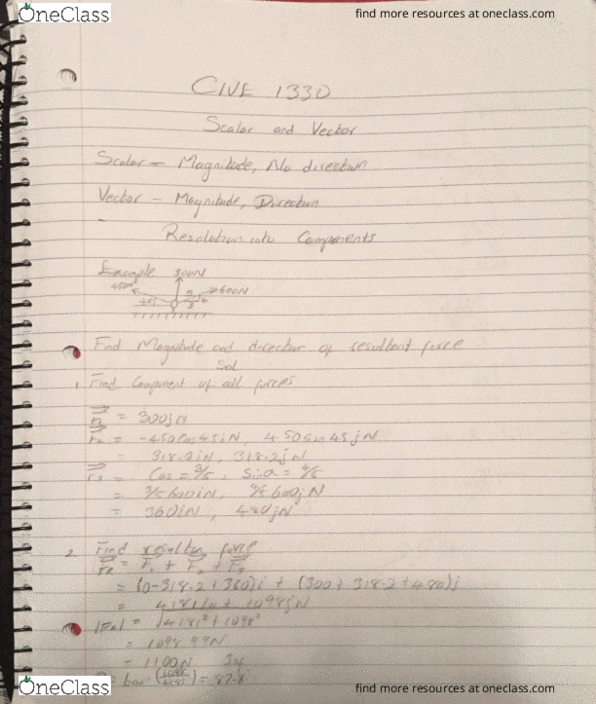 OneClass
find more resources at oneclass.com
CIVE 1330
Scalar and Vector
Scalar – Magnitude, No direction
Vector – Magnitude, Direction
Resolution into Components
Example 300N
450N 600N
45
Find Magnitude and direction of resultant force
Sol
1. Find Component of all forces
= 300jN
= -450cos45iN, 450sin45jN
= 318.2iN, 318.2jN
= Cos = 3/5, Sinα = 4/5
= 3/5 600iN, 4/5 600jN
= 360iN, 480jN
2. Find resultant force
FR = F1 + F2 + F3
= (0-318.2+360)i + (300+318.2+480)j
1098jN
= 1100N
OneClass
find more resources at oneclass.com